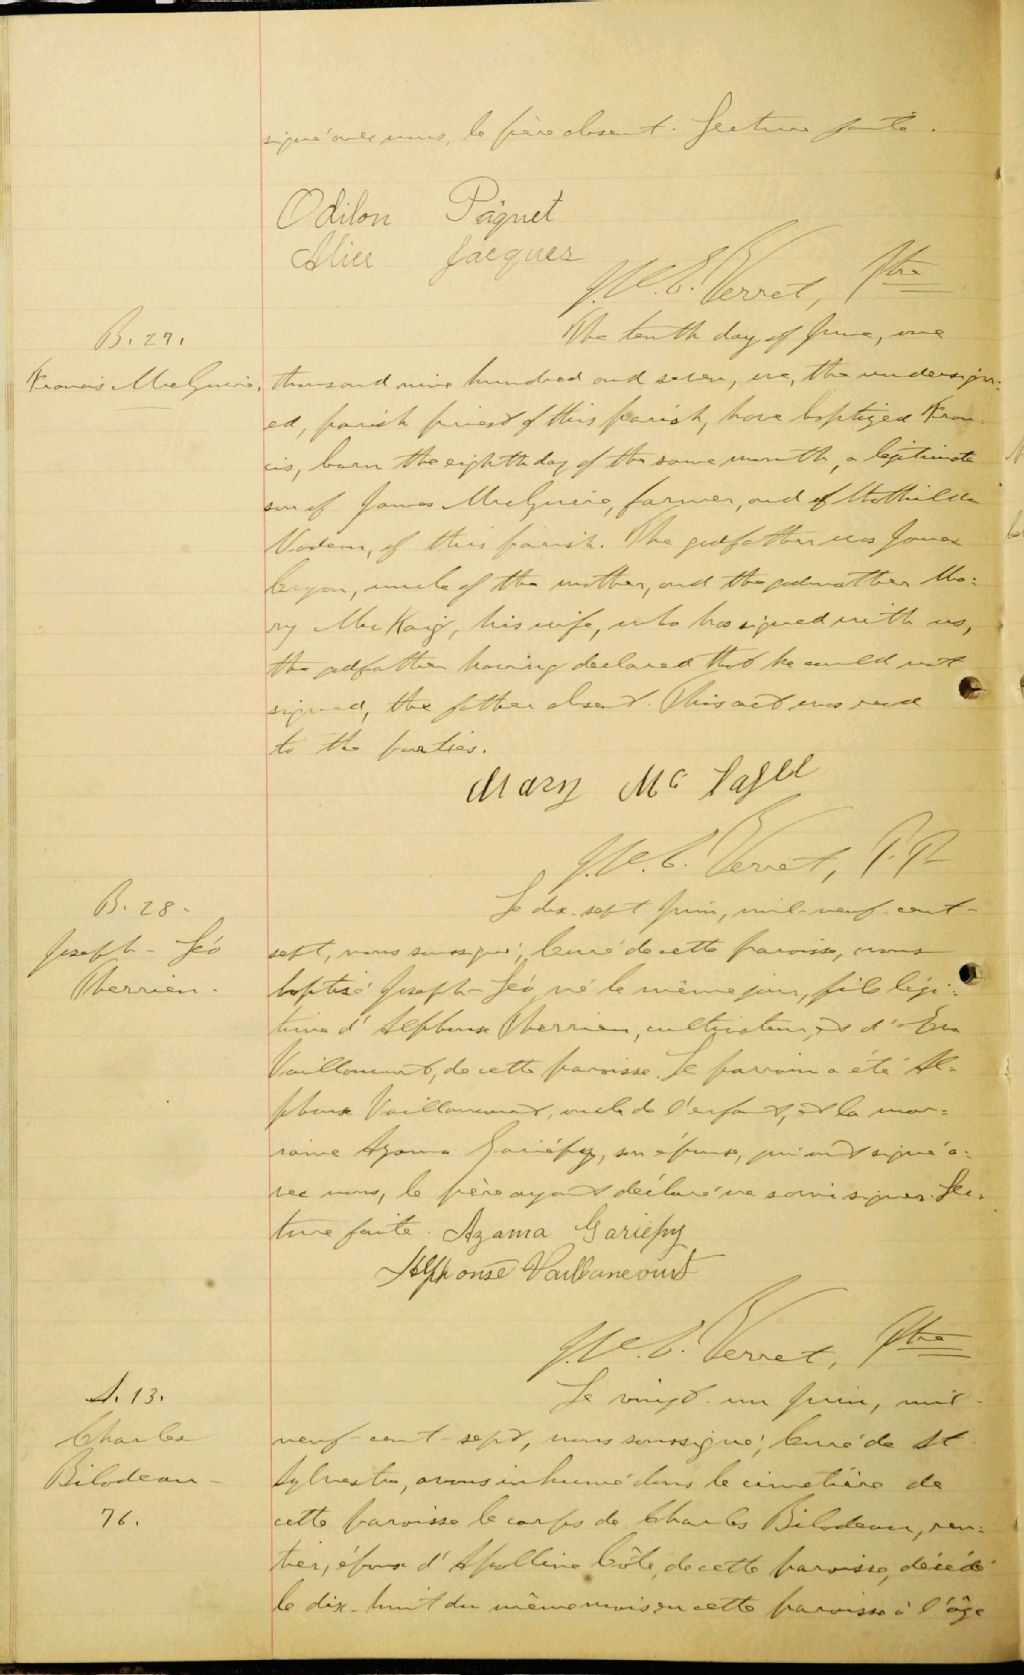 signé avec nous, le père absent. Lecture faite.
Odilon Pâquet
Alice Jacques
J. W. E. Verret, Ptre
B. 27.
Francis McGuire.
The tenth day of June, one
thousand nine hundred and seven, we, the undersign-
ed, parish priest of this parish, have baptized Fran-
cis, born the eighth day of the same month, a legitimate
son of James McGuire, farmer, and of Mathilda
Nadeau, of this parish. The godfather was James
Cryan, uncle of the mother, and the godmother Ma-
ry McKaig, his wife, who has signed with us,
the godfather having declared that he could not
signed, the father absent. This act was read
to the parties.
Mary Mc
J. W. E. Verret, P. P.
B. 28-
Joseph-Léo
Therrien.
Le dix-sept juin, mil-neuf-cent-
sept, nous soussigné, Curé de cette paroisse, avons
baptisé Joseph-Léo, né le même jour, fils légi-
time d'Alphonse Therrien, cultivateur, et d'Eva
Vaillancourt, de cette paroisse. Le parrain a été Al-
phonse Vaillancourt, oncle de l'enfant, et la mar-
raine Azama Gariépy, son épouse, qui ont signé a-
vec nous, le père ayant déclaré ne savoir signer. Lec-
ture faite. Azama Gariépy
Alphonse Vaillancourt
J. W. E. Verret, Ptre
S. 13.
Charles
Bilodeau-
76.
Le vingt-un juin, mil-
neuf-cent-sept, nous soussigné, Curé de St
Sylvestre, avons inhumé dans le cimetière de
cette paroisse le corps de Charles Bilodeau, ren-
tier, époux d'Apolline Côté, de cette paroisse, décédé
le dix-huit du même mois en cette paroisse à l'âge